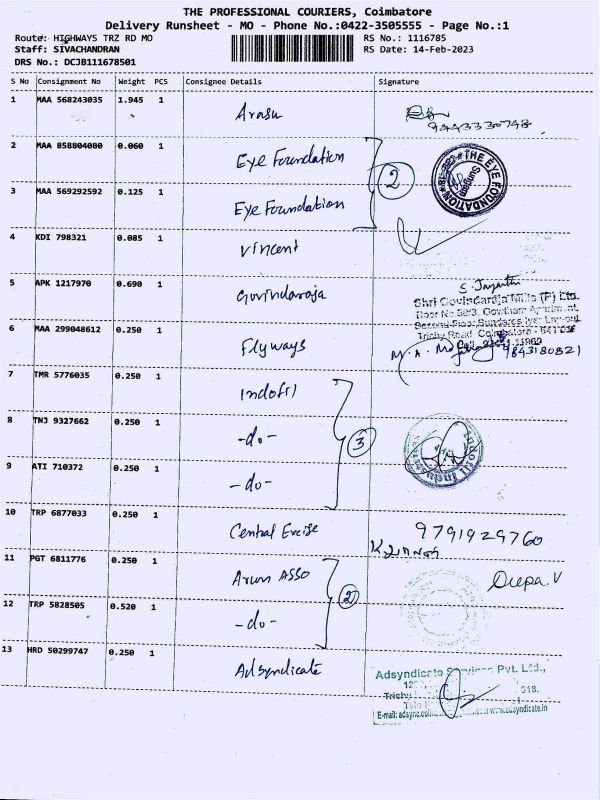 THE PROFESSIONAL COURIERS, Coimbatore
Delivery Runsheet - MO - Phone No.:0422-3505555 - Page No.:1
Route: HIGHWAYS TRZ RD MO
Staff: SIVACHANDRAN
DRS No.: DCJB111678501
RS No.: 1116785
RS Date: 14-Feb-2023
S No Consignment No Weight PCS Consignee Details Signature
1 MAA 568243035 1.945 1 Arasu
9443330748
2 MAA 858804080 0.060 1 Eye Foundation
2
THE EYE FOUNDATION
3 MAA 569292592 0.125 1 Eye Foundation
4 KDI 798321 0.085 1 Vincent
5 APK 1217970 0.690 1 Govindaraja
S. Jayanthi
Shri Govindaraja Mills (P) Ltd.
Trichy Road Coimbatore
6 MAA 299048612 0.250 1 Flyways
9843180821
7 TMR 5776035 0.250 1 Indofil
8 TNJ 9327662 0.250 1 -do-
3
9 ATI 710372 0.250 1 -do-
10 TRP 6877033 0.250 1 Central Excise 9791929760
11 PGT 6811776 0.250 1 Arun ASSO Deepa.V
2
12 TRP 5828505 0.520 1 -do-
13 HRD 50299747 0.250 1 Adsyndicate
Adsyndicate Services Pvt. Ltd.,
Trichy 018.
www.adsyndicate.in